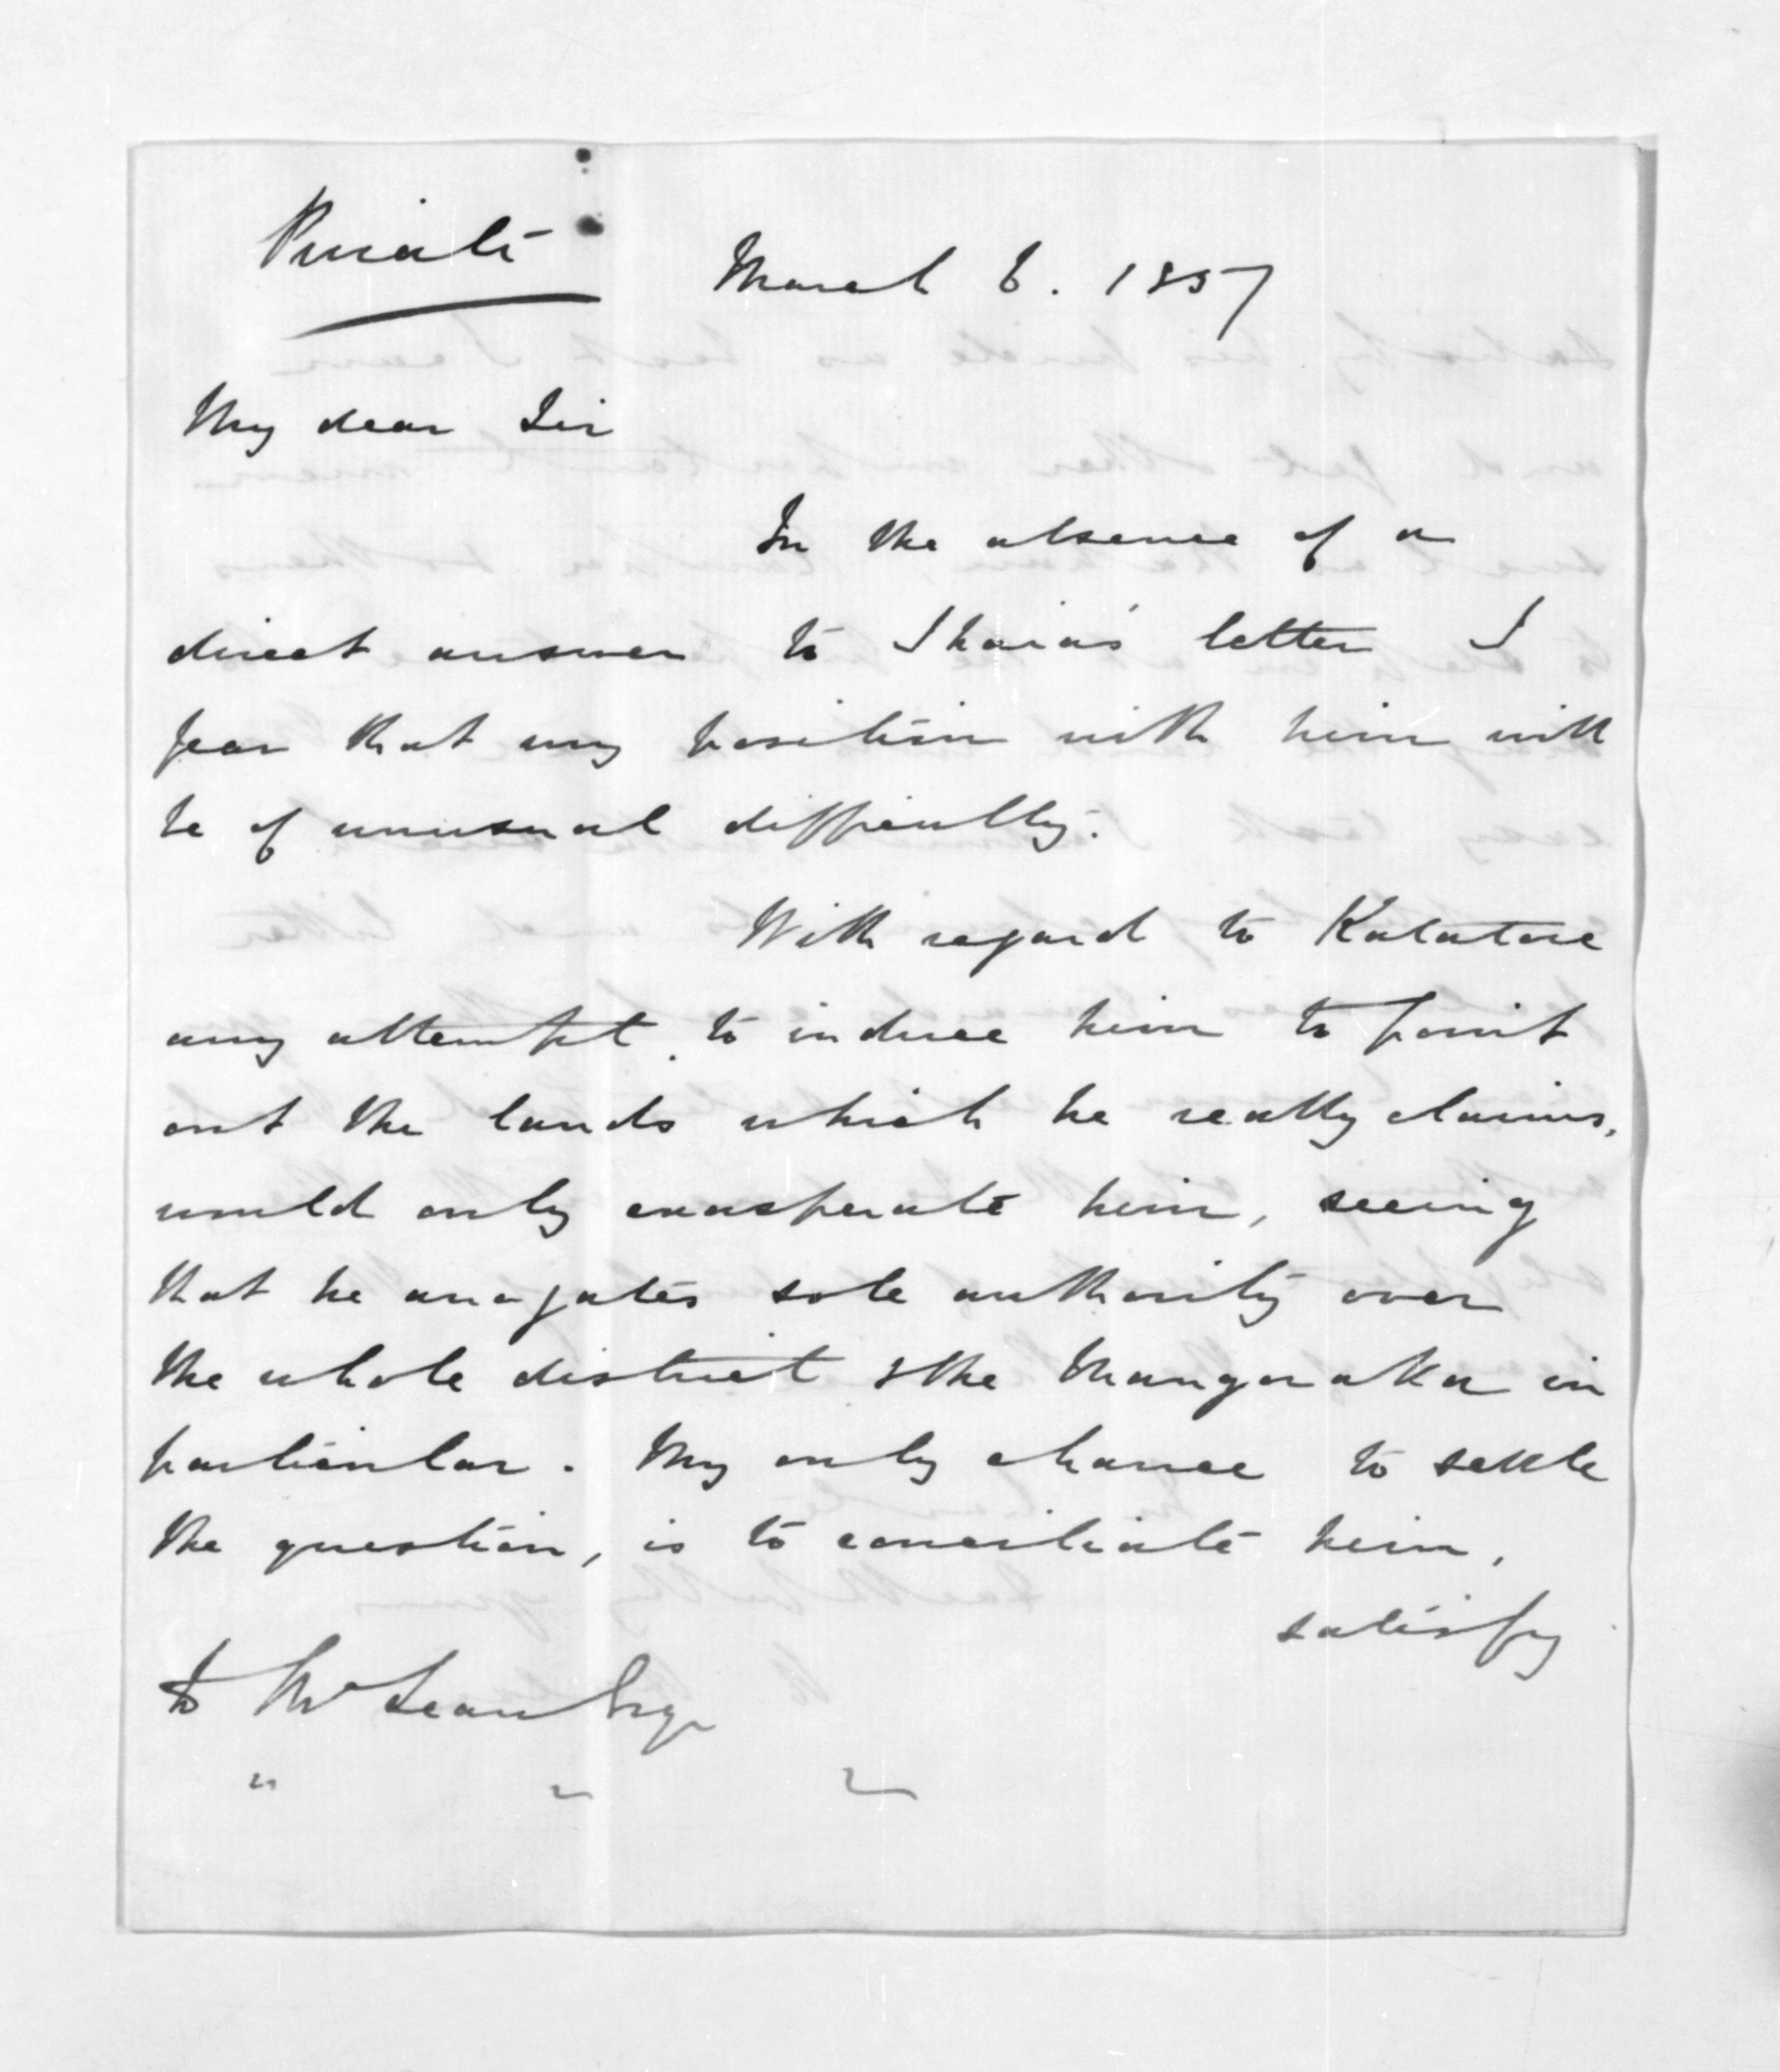 Private
March 6. 1857
My dear Sir
In the absence of a
direct answer to Ihaia's letter I
fear that my position with him will
be of unusual difficulty.
With regard to Katatore
any attempt to induce him to point
out the lands which he really claims,
would only exasperate him, seeing
that he arrogates sole authority over
the whole district & the Mangoraka in
particular. My only chance to settle
the question, is to conciliate him,
satisfy
to McLean Esqr
" " "